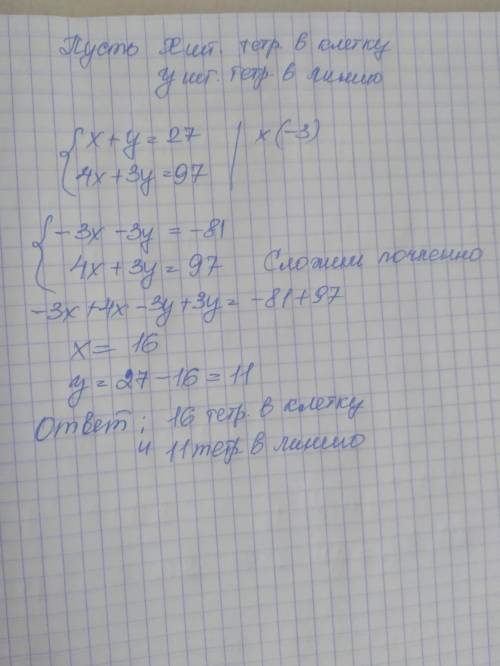 Пусть x шт. тетр. в клетку
y шт. тетр. в линию
{ x + y = 27 | x (-3)
4x + 3y = 97
{ -3x - 3y = -81
4x + 3y = 97 Сложим почленно
-3x + 4x - 3y + 3y = -81 + 97
x = 16
y = 27 - 16 = 11
Ответ: 16 тетр. в клетку
и 11 тетр. в линию